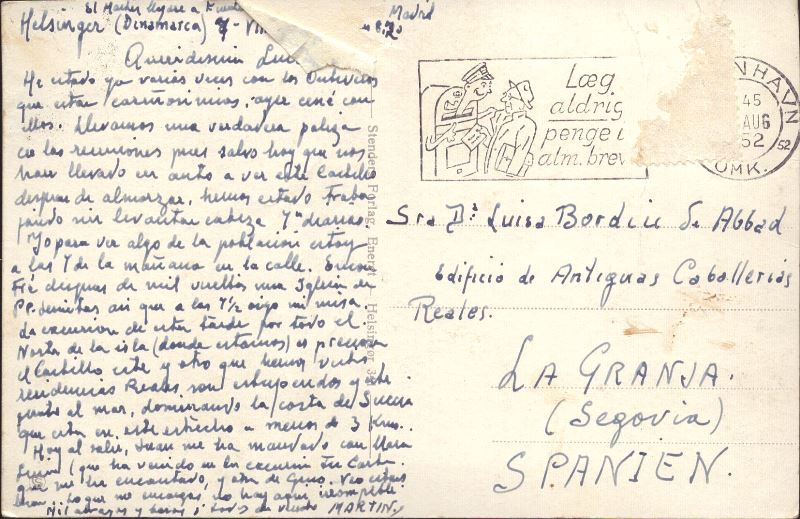 El Martes llegaré a
Madrid
8,20
Helsinger (Dinamarca) 7-VIII
Queridísima Lui
He estado ya varias veces con los
que están cariñosimos, ayer cené con
ellos. Llevamos una verdadera paliza
con las reuniones pues salvo hoy que nos
han llevado en auto a ver este Castillo
despues de almorzar, hemos estado traba
jando sin levantar cabeza 7 diarias.
Yo para ver algo de la población estoy
a las 7 de la mañana en la calle. Encon
tré despues de mil vueltas una Iglesia de
PP. Jesuitas asi que a las 7½ oigo mi misa.
La excursion de esta tarde por todo el
Norte de la isla (donde estamos) es preciosa
el Castillo este y otro que hemos visto
residencias Reales son estupendos y este
junto al mar, dominando la costa de Suecia
que esta en este estrecho a menos de 3 Kms.
Hoy al salir, Juan me ha mandado con
(que ha venido en la excursion tu Carta
que me ha encantado, y otra de
lo que me encargas no hay aqui
Mil abrazos y besos a todos de vuestro MARTIN
Stenders Forlag, Eneret Helsingør 3
Læg
aldrig
penge i
alm. brev
NHAVN
45
AUG
52
OMK.
52
Sra Dª Luisa Bordiu de Abbad
Edificio de Antiguas Caballerias
Reales.
LA GRANJA.
(Segovia)
SPANIEN.